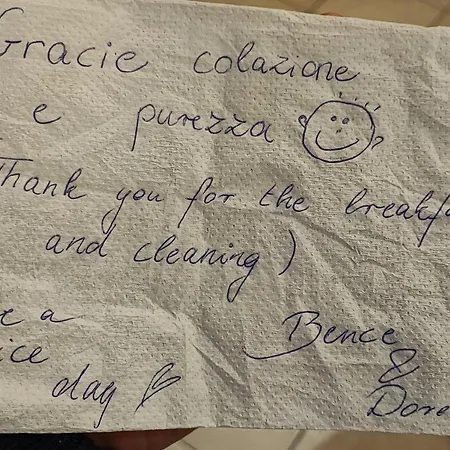 Gracie colazione
e purezza
Thank you for the breakfa
and cleaning)
e a
ice
day
Bence
&
Dore